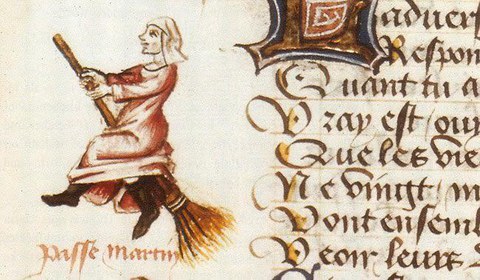 passe martin
Laduers
Respon
Quant tu a
Vray est / ou
Que les vie
Ne vingt / m
Vont ensemb
Veoir leurs